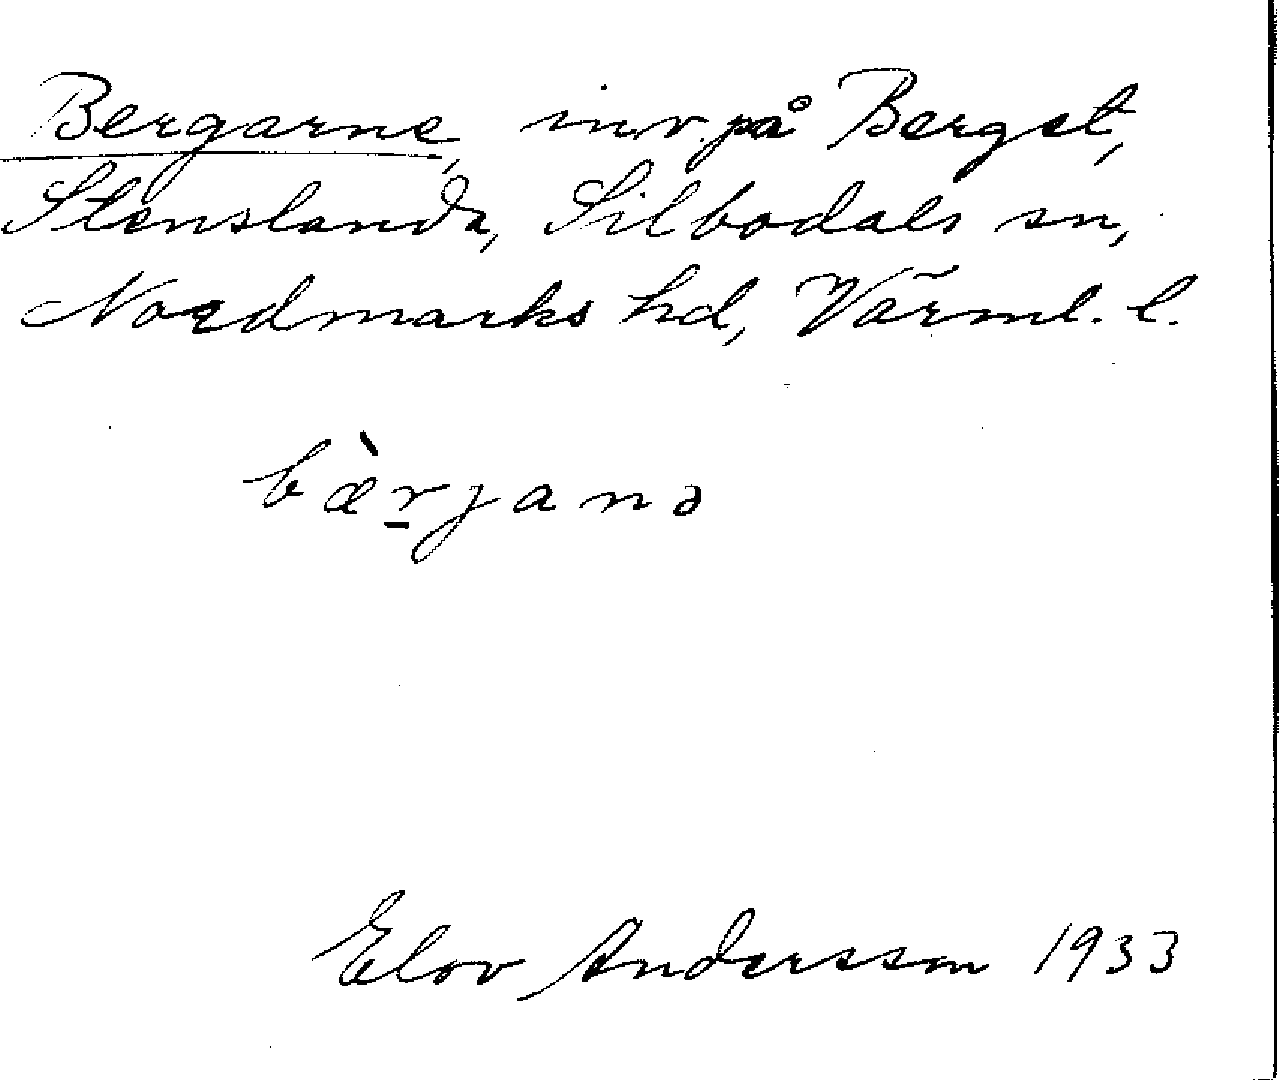 Bergarne, inv. på Berget,
Stenslanda, Silbodals sn,
Nordmarks hd, Värml. l.
bæ̀r̲janə
Elov Andersson 1933